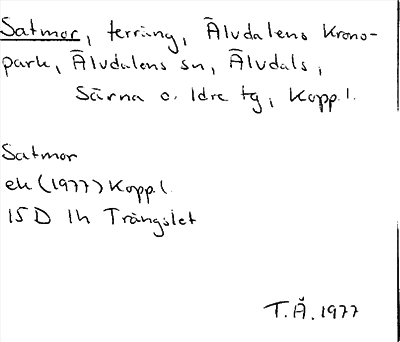 Satmor, terräng, Älvdalens Krono-
park, Älvdalens sn, Älvdals,
Särna o. Idre tg, Kopp. l.
Satmor
ek (1977) Kopp. l.
15 D 1h Trängslet
T. Å. 1977